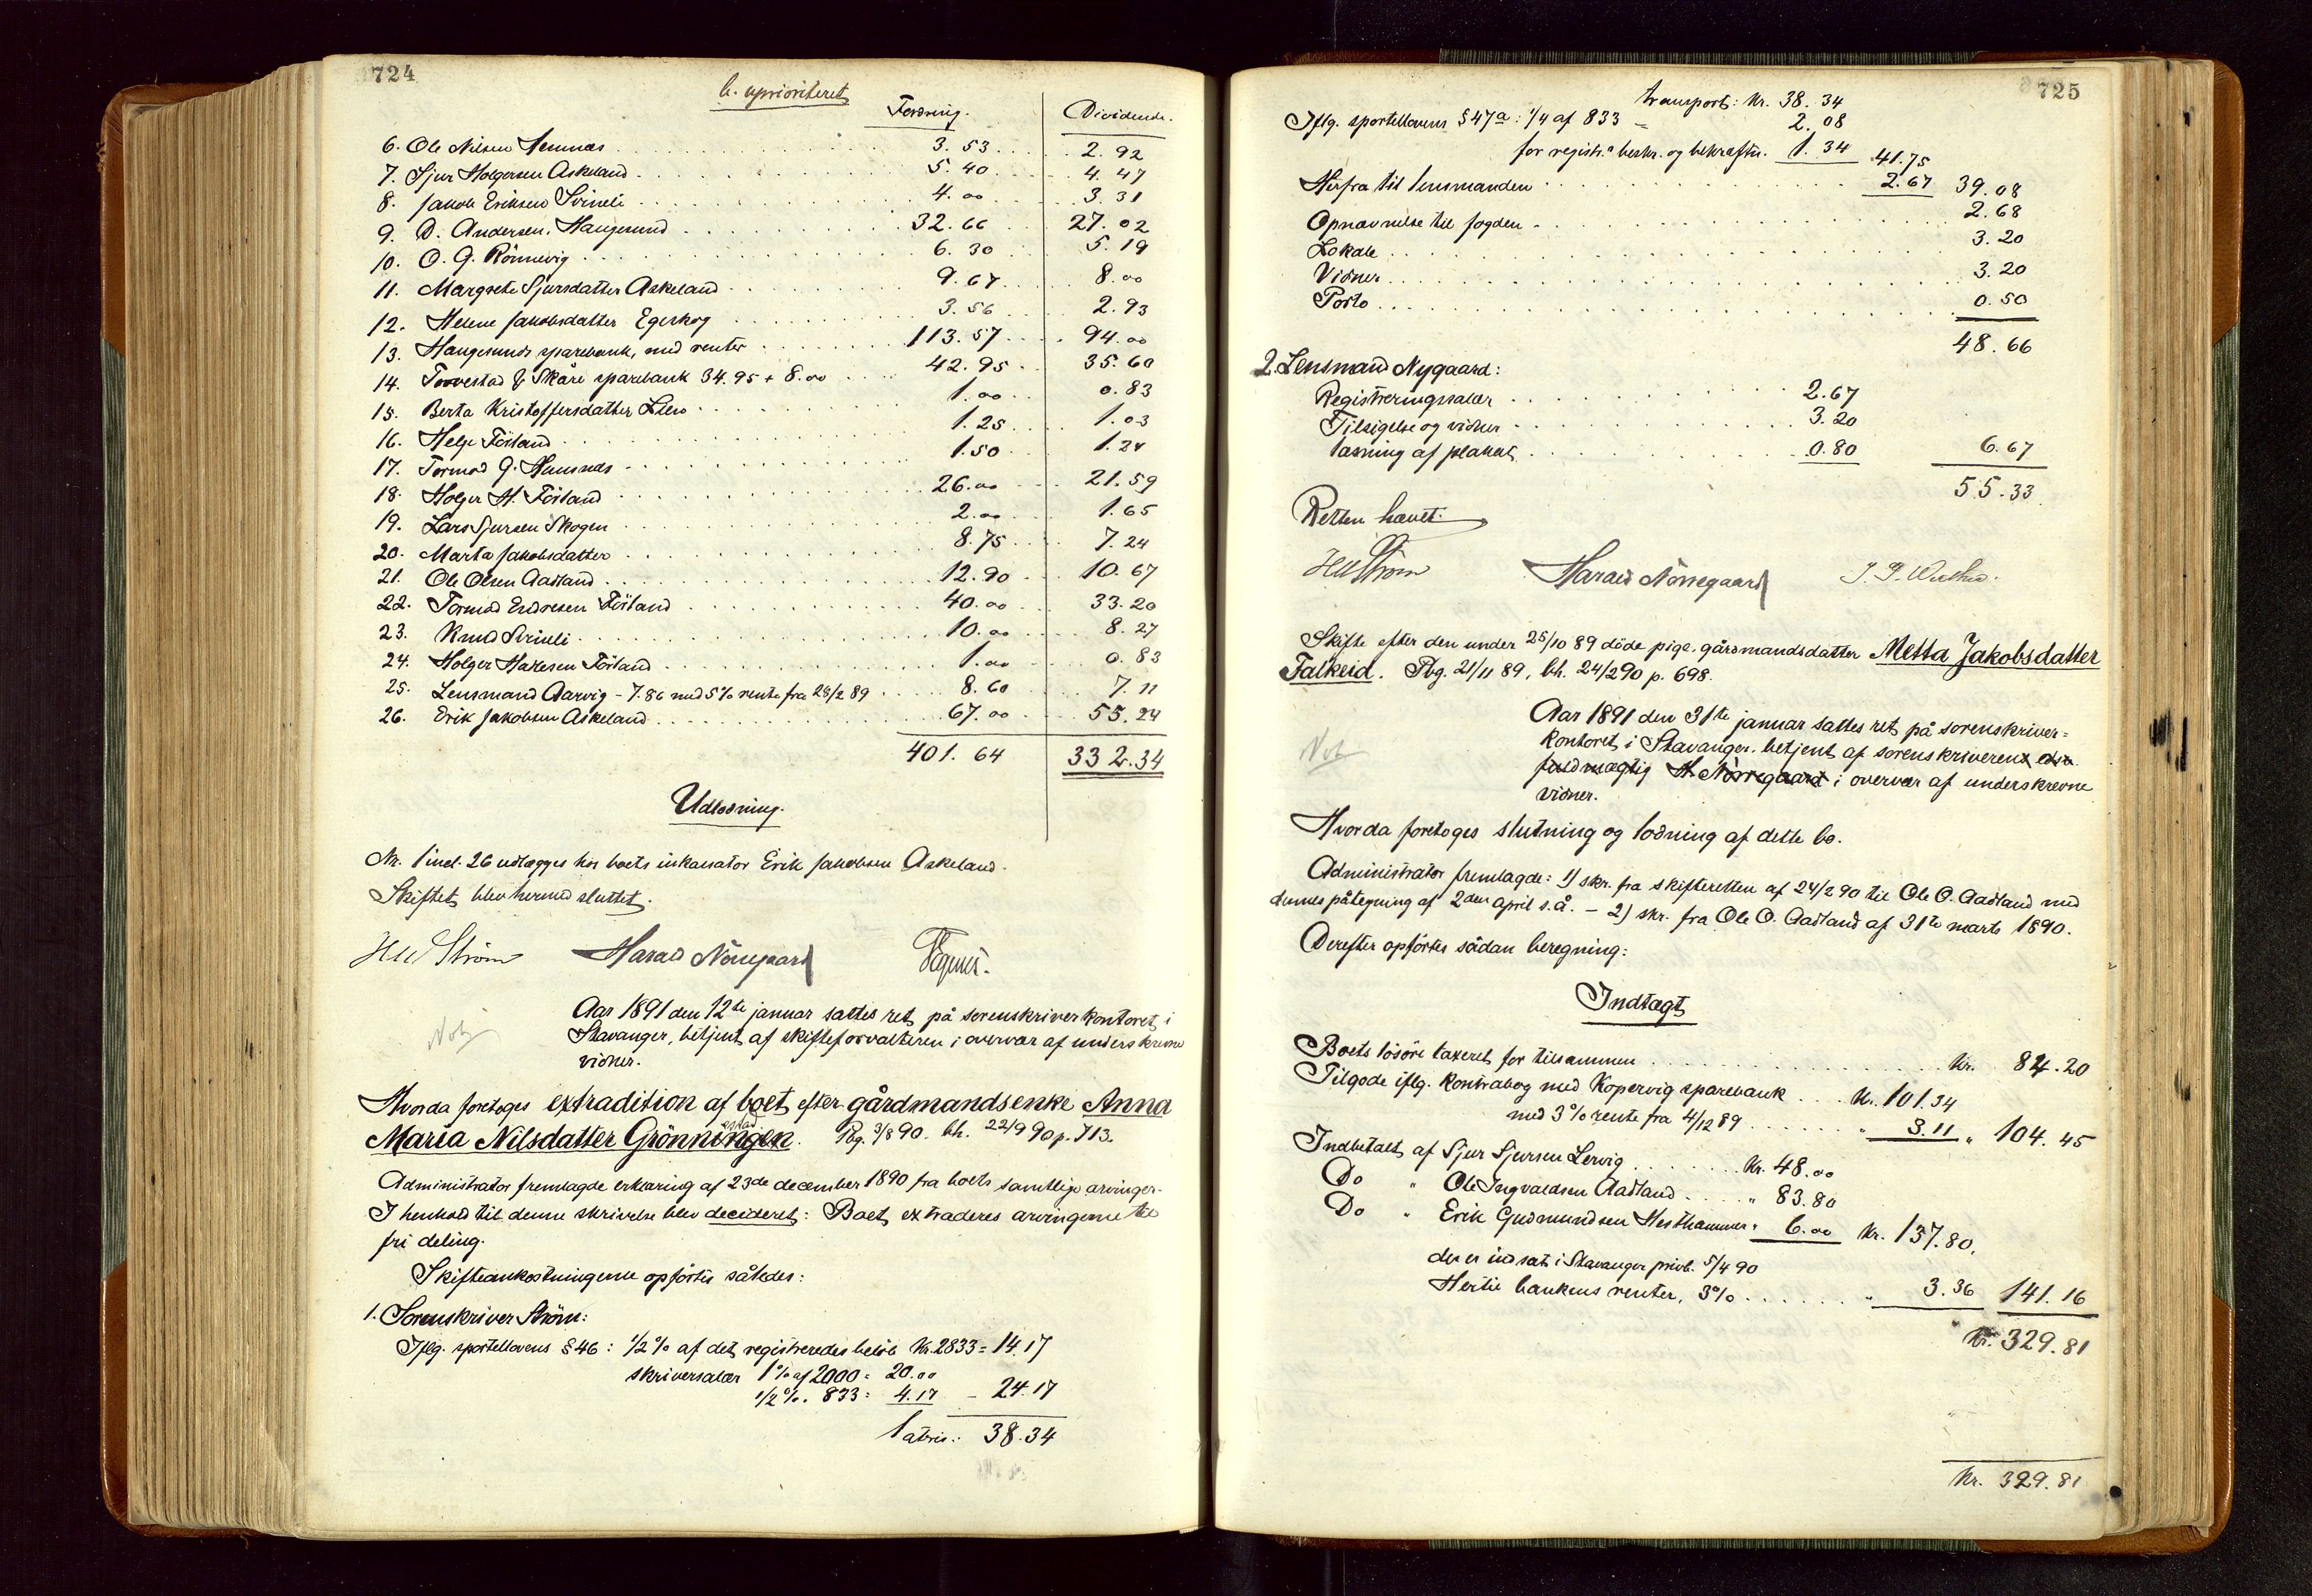 724
b. uprioriteret
Fordring. Dividende.
6. Ole Nilsen Hemnæs 3.53 2.92
7. Sjur Holgersen Askeland 5.40 4.47
8. Jakob Eriksen Svineli 4.00 3.31
9. D. Andersen, Haugesund 32.66 27.02
10. O. G. Rönnevig 6.30 5.19
11. Margrete Sjursdatter Askeland 9.67 8.00
12. Helene Jakobsdatter Egeskog 3.56 2.93
13. Haugesunds sparebank, med renter 113.57 94.00
14. Torvestad & Skåre sparebank 34.95 + 8.00 42.95 35.60
15. Berta Kristoffersdatter 1.00 0.83
16. Helge Förland 1.25 1.03
17. Tormod G. 1.50 1.24
18. Holger H. Förland 26.00 21.59
19. Lars Sjursen Skogen 2.00 1.65
20. Marta Jakobsdatter 8.75 7.24
21. Ole Olsen Aadland 12.90 10.67
22. Tormod Endresen Förland 40.00 33.20
23. Knud Svineli 10.00 8.27
24. Holger Förland 1.00 0.83
25. Lensmand Aarvig - 7.86 med 5% rente fra 28/2 89 8.60 7.11
26. Erik Jakobsen Askeland 67.00 55.24
401.64 332.34
Udlodning.
Nr. 1 incl. 26 udlægges hos boets inkassator Erik Jakobsen Askeland.
Skiftet blev hermed sluttet.
HW Ström Harald Nörregaard
Not
Aar 1891 den 12te januar sattes ret på sorenskriverkontoret i
Stavanger, betjent af skifteforvalteren i overvær af underskrevne
vidner.
Hvorda foretoges extradition af boet efter gårdmandsenke Anna
Maria Nilsdatter Grönningen. Pbg. 3/8 90. bh. 22/9 90 p. 713.
Administrator fremlagde erklæring af 23de december 1890 fra boets samtlige arvinger.
I henhold til denne skrivelse blev decideret: Boet extraderes arvingerne til
fri deling.
Skifteomkostningerne opförtes således:
1. Sorenskriver Ström:
Iflg. sportellovens § 46: 1/2 % af det registreredes belöb Kr. 2833 = 14.17
skriversalær 1 % af 2000 = 20.00
1/2 %. 833 = 4.17 - 24.17
latris: 38.34
725
transport: Kr. 38.34
Iflg. sportellovens § 47a: 1/4 af 833 2.08
for registr.s beskr. og bekræftn. 1.34 41.75
Herfra til lensmanden 2.67 39.08
Opnævnelse til fogden 2.68
Lokale 3.20
Vidner 3.20
Porto 0.50
48.66
2. Lensmand Nygaard:
Registreringssalær 2.67
Tilsigelse og vidner 3.20
læsning af plakat 0.80 6.67
55.33
Retten hævet.
HW Ström Harald Nörregaard
Skifte efter den under 25/10 89 döde pige, gårdmandsdatter Metta Jakobsdatter
Falkeid. Pbg. 21/11 89, bh. 24/2 90 p. 698.
Not
Aar 1891 den 31te januar sattes ret på sorenskriver=
kontoret i Stavanger, betjent af sorenskriverens edsv.
fuldmægtig H. Nörregaard i overvær af underskrevne
vidner.
Hvorda foretoges slutning og lodning af dette bo.
Administrator fremlagde: 1) skr. fra skifteretten af 24/2 90 til Ole O. Aadland med
dennes påtegning af 2den april s.å. - 2) skr. fra Ole O. Aadland af 31te marts 1890.
Derefter opförtes sådan beregning:
Indtægt
Boets lösöre taxeret for tilsammen Kr. 84.20
Tilgode iflg. kontrabog med Kopervig sparebank Kr. 101.34
med 3 % rente fra 4/12 89 " 3.11 " 104.45
Indbetalt af Sjur Sjursen Lervig Kr. 48.00
Do " Ole Ingvaldsen Aadland " 83.80
Do " Erik Gudmundsen Hesthammer " 6.00 Kr. 137.80,
der er indsat i Stavanger privb. 5/4 90
Hertil bankens renter, 3% " 3.36 141.16
Kr. 329.81
Kr. 329.81